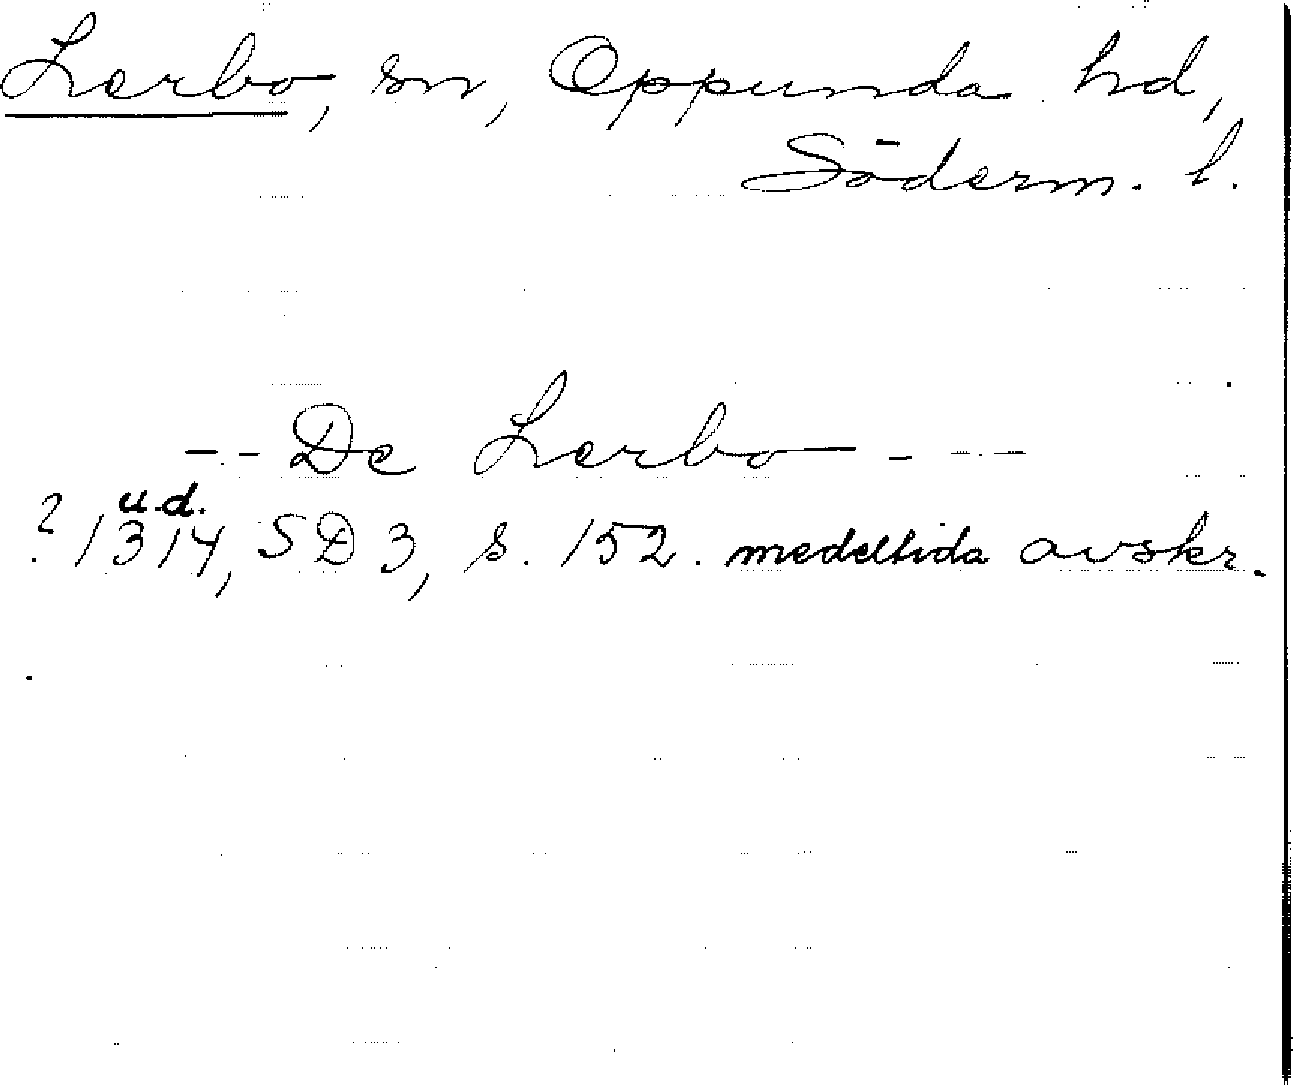 Lerbo, sn, Oppunda hd,
Söderm. l.
-- De Lerbo - --
u.d.
? 1314, SD 3, s. 152. medeltida avskr.